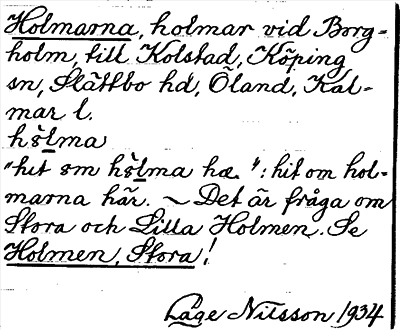 Holmarna, holmar vid Borg-
holm, till Kolstad, Köping
sn, Slättbo hd, Öland, Kal-
mar l.
hŏlma
"hit om hŏlma hæ.": hit om hol-
marna här. ~ Det är fråga om
Stora och Lilla Holmen. Se
Holmen, Stora!
Låge Nilsson 1934